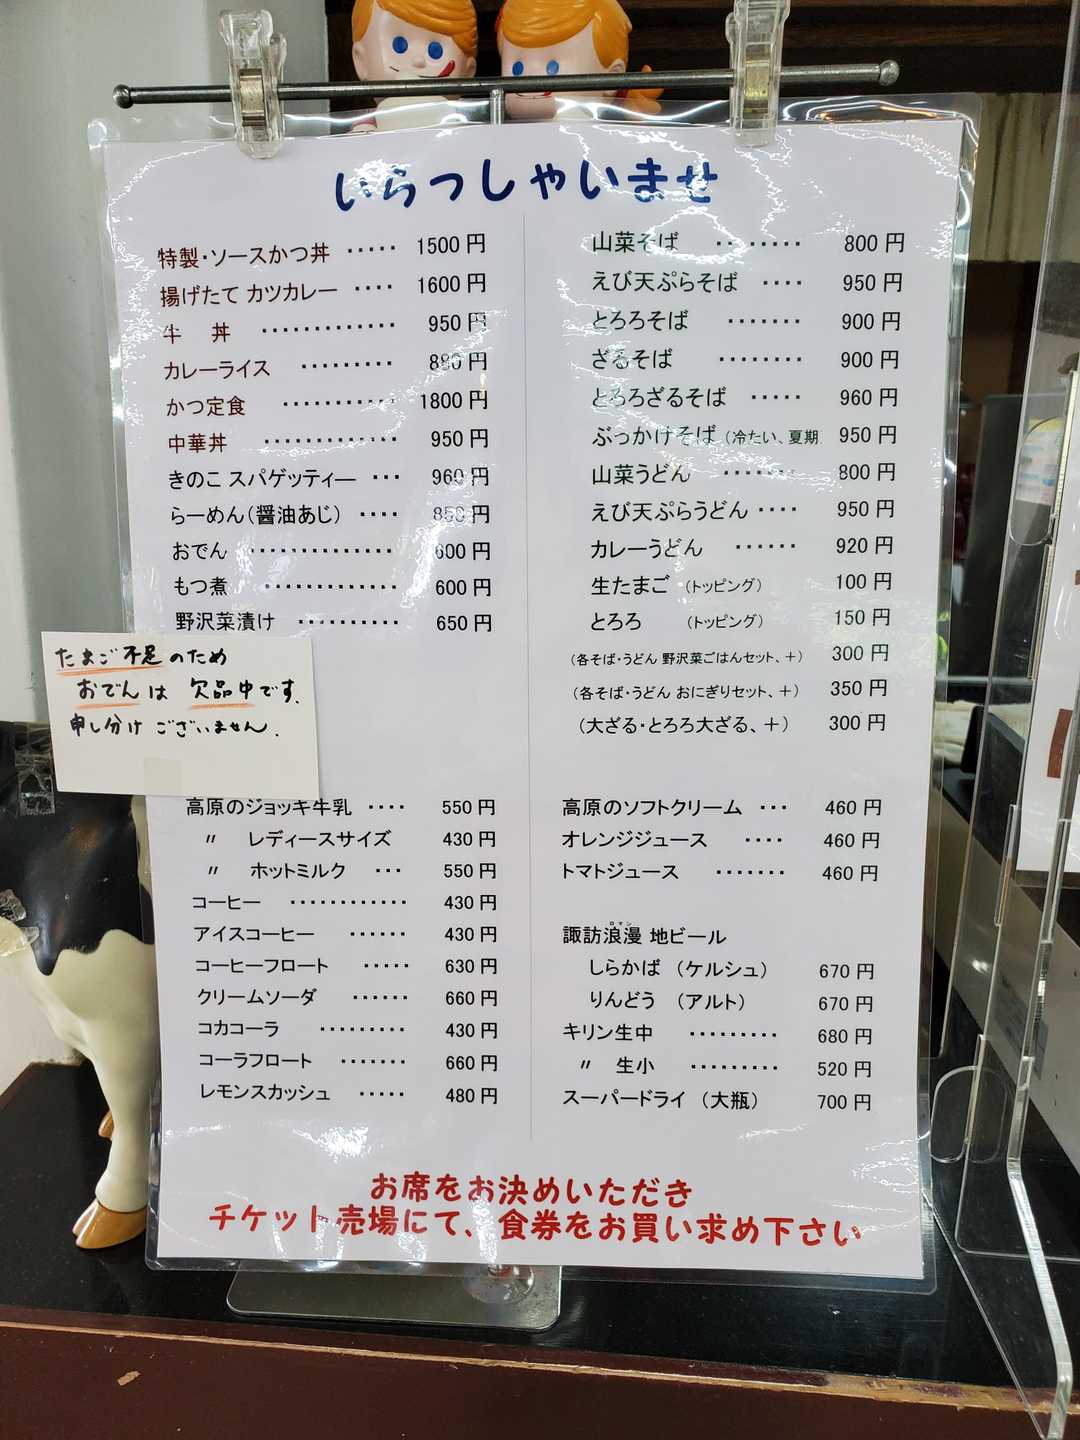 いらっしゃいませ
特製・ソースかつ丼 ‥‥‥ 1500 円
揚げたて カツカレー ‥‥ 1600 円
牛 丼 ‥‥‥‥‥‥ 950 円
カレーライス ‥‥‥‥‥ 880 円
かつ定食 ‥‥‥‥‥‥ 1800 円
中華丼 ‥‥‥‥‥‥ 950 円
きのこ スパゲッティー ‥‥ 960 円
らーめん（醤油あじ） ‥‥ 円
おでん ‥‥‥‥‥‥‥ 600 円
もつ煮 ‥‥‥‥‥‥ 600 円
野沢菜漬け ‥‥‥‥‥ 650 円
たまご不足のため
おでんは 欠品中です.
申し分けございません.
高原のジョッキ牛乳 ‥‥ 550 円
〃 レディースサイズ 430 円
〃 ホットミルク ‥‥ 550 円
コーヒー ‥‥‥‥‥‥ 430 円
アイスコーヒー ‥‥‥ 430 円
コーヒーフロート ‥‥‥ 630 円
クリームソーダ ‥‥‥ 660 円
コカコーラ ‥‥‥‥‥ 430 円
コーラフロート ‥‥‥‥ 660 円
レモンスカッシュ ‥‥‥ 480 円
山菜そば ‥‥‥‥ 800 円
えび天ぷらそば ‥‥ 950 円
とろろそば ‥‥‥‥ 900 円
ざるそば ‥‥‥‥ 900 円
とろろざるそば ‥‥‥ 960 円
ぶっかけそば（冷たい、夏期 950 円
山菜うどん ‥‥‥‥ 800 円
えび天ぷらうどん ‥‥ 950 円
カレーうどん ‥‥‥ 920 円
生たまご （トッピング） 100 円
とろろ （トッピング） 150 円
（各そば・うどん 野沢菜ごはんセット、＋） 300 円
（各そば・うどん おにぎりセット、＋） 350 円
（大ざる・とろろ大ざる、＋） 300 円
高原のソフトクリーム ‥‥ 460 円
オレンジジュース ‥‥ 460 円
トマトジュース ‥‥‥‥ 460 円
ロマン
諏訪浪漫 地ビール
しらかば （ケルシュ） 670 円
りんどう （アルト） 670 円
キリン生中 ‥‥‥‥‥ 680 円
〃 生小 ‥‥‥‥‥ 520 円
スーパードライ （大瓶） 700 円
お席をお決めいただき
チケット売場にて、食券をお買い求め下さい